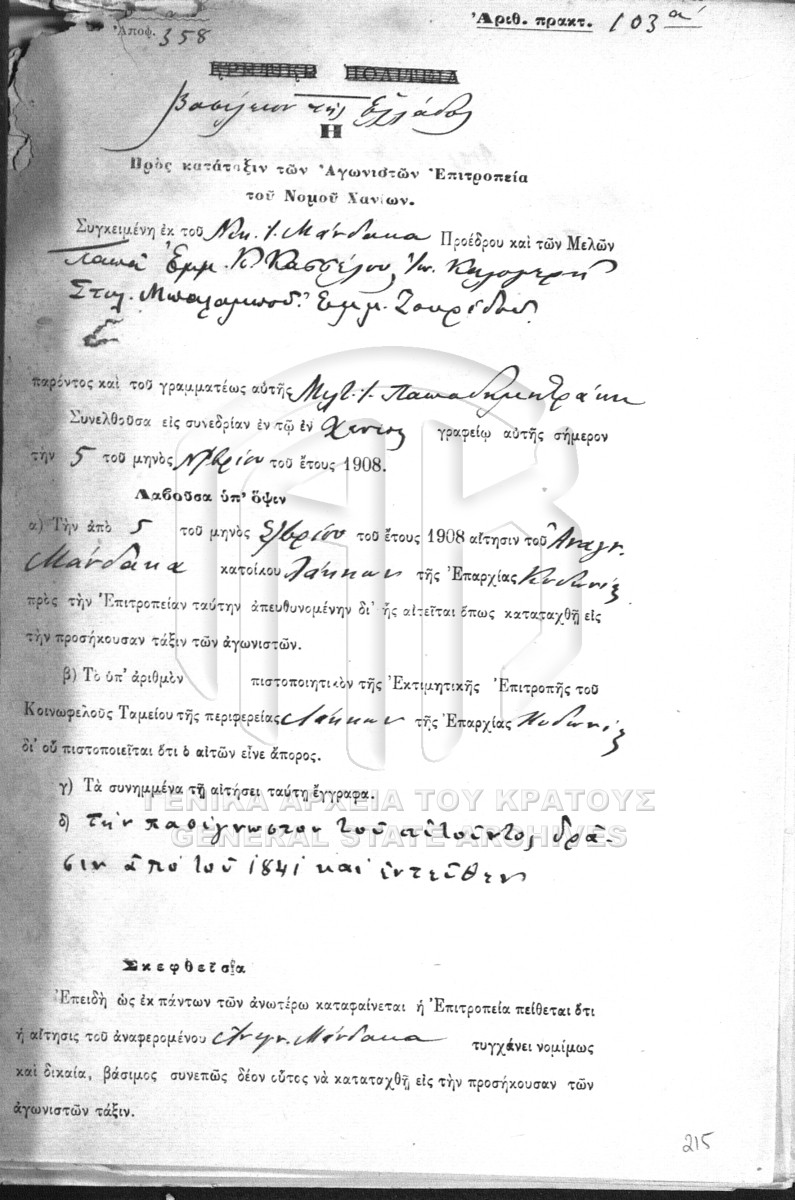 Ἀριθ. πρακτ. 103 α'
Ἀποφ. 358
ΚΡΗΤΙΚΗ ΠΟΛΙΤΕΙΑ
Βασίλειον τῆς Ἑλλάδος
Η
Πρὸς κατάταξιν τῶν Ἀγωνιστῶν Ἐπιτροπεία
τοῦ Νομοῦ Χανίων.
Συγκειμένη ἐκ τοῦ Μάνδακα Προέδρου καὶ τῶν Μελῶν
Παπᾶ Ἐμμ. Κ. Καστέλου, Ἰω. Καλογερῆ
Στυλ. Ἐμμ. Ζουρίδου
παρόντος καὶ τοῦ γραμματέως αὐτῆς Μιλτ. Ι. Παπαδημητράκη
Συνελθοῦσα εἰς συνεδρίαν ἐν τῷ ἐν Χανίοις γραφείῳ αὐτῆς σήμερον
τὴν 5 τοῦ μηνὸς Νβρίου τοῦ ἔτους 1908.
Λαβοῦσα ὑπ' ὄψιν
α) Τὴν ἀπὸ 5 τοῦ μηνὸς τοῦ ἔτους 1908 αἴτησιν τοῦ Ἀναγν.
Μάνδακα κατοίκου Λάκκων τῆς Ἐπαρχίας Κυδωνίας
πρὸς τὴν Ἐπιτροπείαν ταύτην ἀπευθυνομένην δι' ἧς αἰτεῖται ὅπως καταταχθῇ εἰς
τὴν προσήκουσαν τάξιν τῶν ἀγωνιστῶν.
β) Τὸ ὑπ' ἀριθμὸν πιστοποιητικὸν τῆς Ἐκτιμητικῆς Ἐπιτροπῆς τοῦ
Κοινωφελοῦς Ταμείου τῆς περιφερείας Λάκκων τῆς Ἐπαρχίας Κυδωνίας
δι' οὗ πιστοποιεῖται ὅτι ὁ αἰτῶν εἶνε ἄπορος.
γ) Τὰ συνημμένα τῇ αἰτήσει ταύτῃ ἔγγραφα.
ΓΕΝΙΚΑ ΑΡΧΕΙΑ ΤΟΥ ΚΡΑΤΟΥΣ
δ) τὴν πασίγνωστον τοῦ αἰτοῦντος δρᾶ-
GENERAL STATE ARCHIVES
σιν ἀπὸ τοῦ 1841 καὶ ἐντεῦθεν
Σκεφθεῖσα
Ἐπειδὴ ὡς ἐκ πάντων τῶν ἀνωτέρω καταφαίνεται ἡ Ἐπιτροπεία πείθεται ὅτι
ἡ αἴτησις τοῦ ἀναφερομένου Ἀναγν. Μάνδακα τυγχάνει νομίμως
καὶ δικαία, βάσιμος συνεπῶς δέον οὗτος νὰ καταταχθῇ εἰς τὴν προσήκουσαν τῶν
ἀγωνιστῶν τάξιν.
215